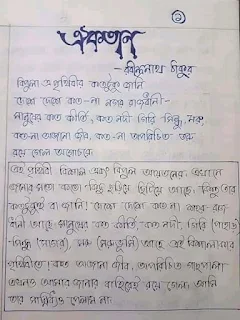 ১
ঐকতান
- রবীন্দ্রনাথ ঠাকুর
বিপুলা এ পৃথিবীর কতটুকু জানি
দেশে দেশে কত-না নগর রাজধানী-
মানুষের কত কীর্তি, কত নদী গিরি সিন্ধু মরু,
কত-না অজানা জীব, কত-না অপরিচিত তরু
রয়ে গেল অগোচরে
এই পৃথিবী বিশাল এবং বিপুল আয়তনের, এখানে
জানার মতো কতো কিছু ছড়িয়ে ছিটিয়ে আছে, কিন্তু তার
কতটুকুই বা জানি। দেশে দেশে কত না শহর রাজ
ধানী আছে মানুষের কত কীর্তি, কত নদী, গিরি (পাহাড়)
সিন্ধু (সাগর) মরু (মরুভূমি) আছে এই বিশালাকার
পৃথিবীতে। কত অজানা জীব, অপরিচিত গাছপালা
এখনও আমার জানার বাহিরেই রয়ে গেল। আমি
তার সান্নিধ্য পেলাম না।